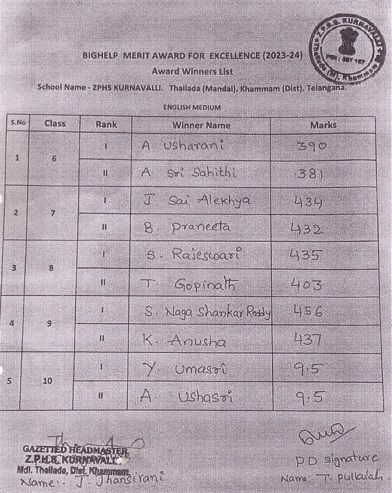 BIGHELP MERIT AWARD FOR EXCELLENCE (2023-24)
Award Winners List
School Name - ZPHS KURNAVALLI. Thallada (Mandal), Khammam (Dist), Telangana.
ENGLISH MEDIUM
S.No Class Rank Winner Name Marks
1 6 I A Usharani 390
II A Sri Sahithi 381
2 7 I J Sai Alekhya 434
II B Praneeta 432
3 8 I S. Rajeswari 435
II T Gopinath 403
4 9 I S. Naga Shankar Reddy 456
II K. Anusha 437
5 10 I Y. Umasri 9.5
II A. Ushasri 9.5
GAZETTED HEADMASTER
Z.P.H.S. KURNAVALLI
Mdl. Thallada, Dist. Khammam.
Name:- J. Jhansirani
PD signature
Name: T pullaiah